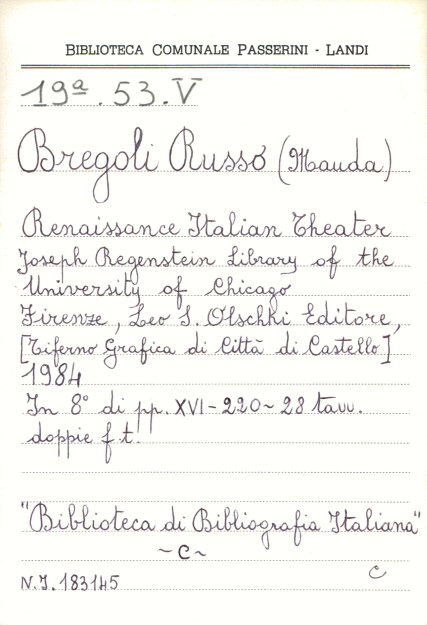 BIBLIOTECA COMUNALE PASSERINI - LANDI
19ª.53.V
Bregoli Russo (Mauda)
Renaissance Italian Theater
Joseph Regenstein Library of the
University of Chicago
Firenze, Leo S. Olschki Editore,
[Tiferno Grafica di Città di Castello]
1984
In 8° di pp. XVI-220~28 tavv.
doppie f.t.
"Biblioteca di Bibliografia Italiana"
~C~
C
N.I.183145